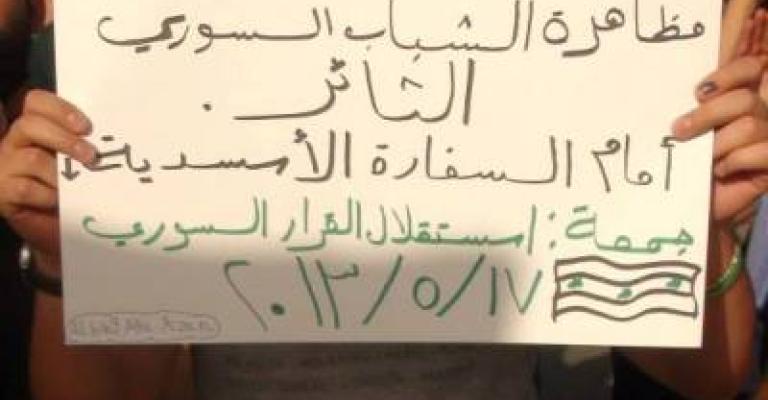 مظاهرة الشباب السوري
الثائر .
أمام السفارة الأسدية
جمعة : إستقلال القرار السوري
٢٠١٣/٥/١٧